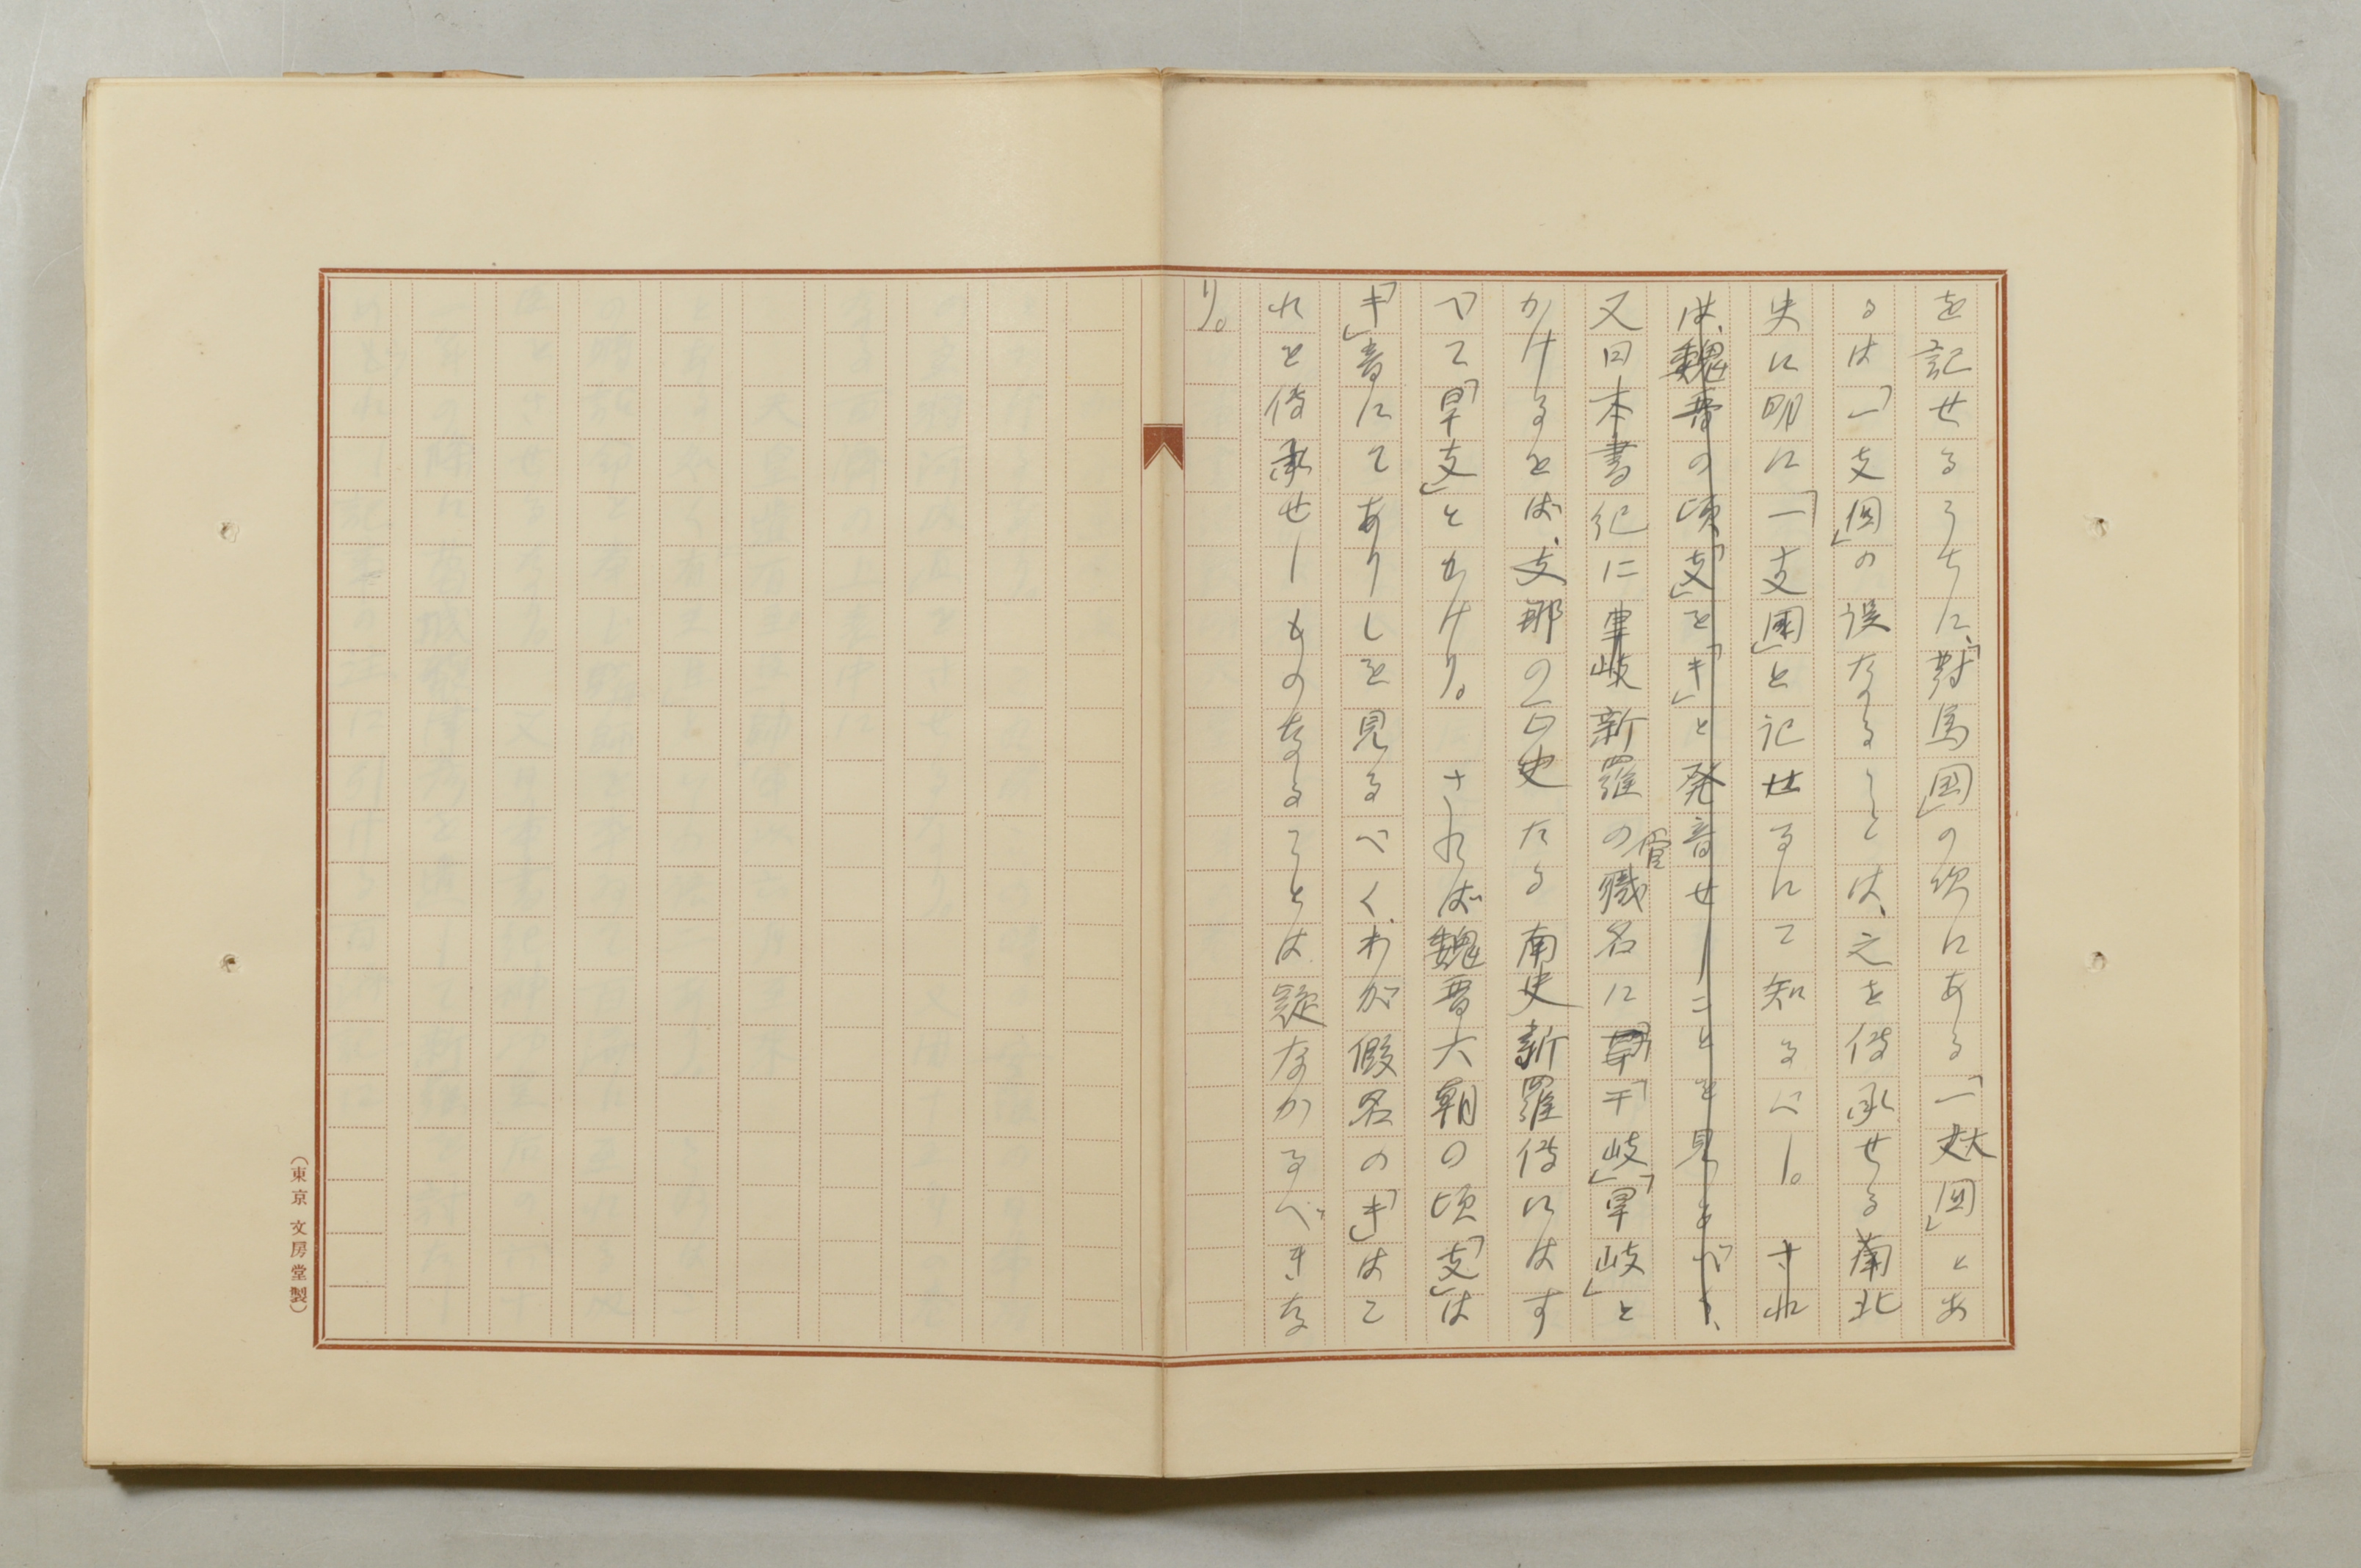 を記せるうちに、「對馬国」の次にある「一支大国」とあ
るは「一支国」の誤なることは、之を伝承せる南北
史に明に「一支国」と記せるにて知るべし。され
ば、魏晋の頃「支」を「キ」と発音せしことを見るべく、
又日本書紀に 岐新羅の官職名に「干岐」「旱岐」と
かけるをば、支那の正史たる南史新羅伝にはす
べて「旱支」とかけり。 されば魏晋六朝の頃「支」は
「キ」音にてありしを見るべく、わが假名の「キ」はこ
れを伝承せしものなることは疑なかるべきな
り。
(東京 文房堂製)